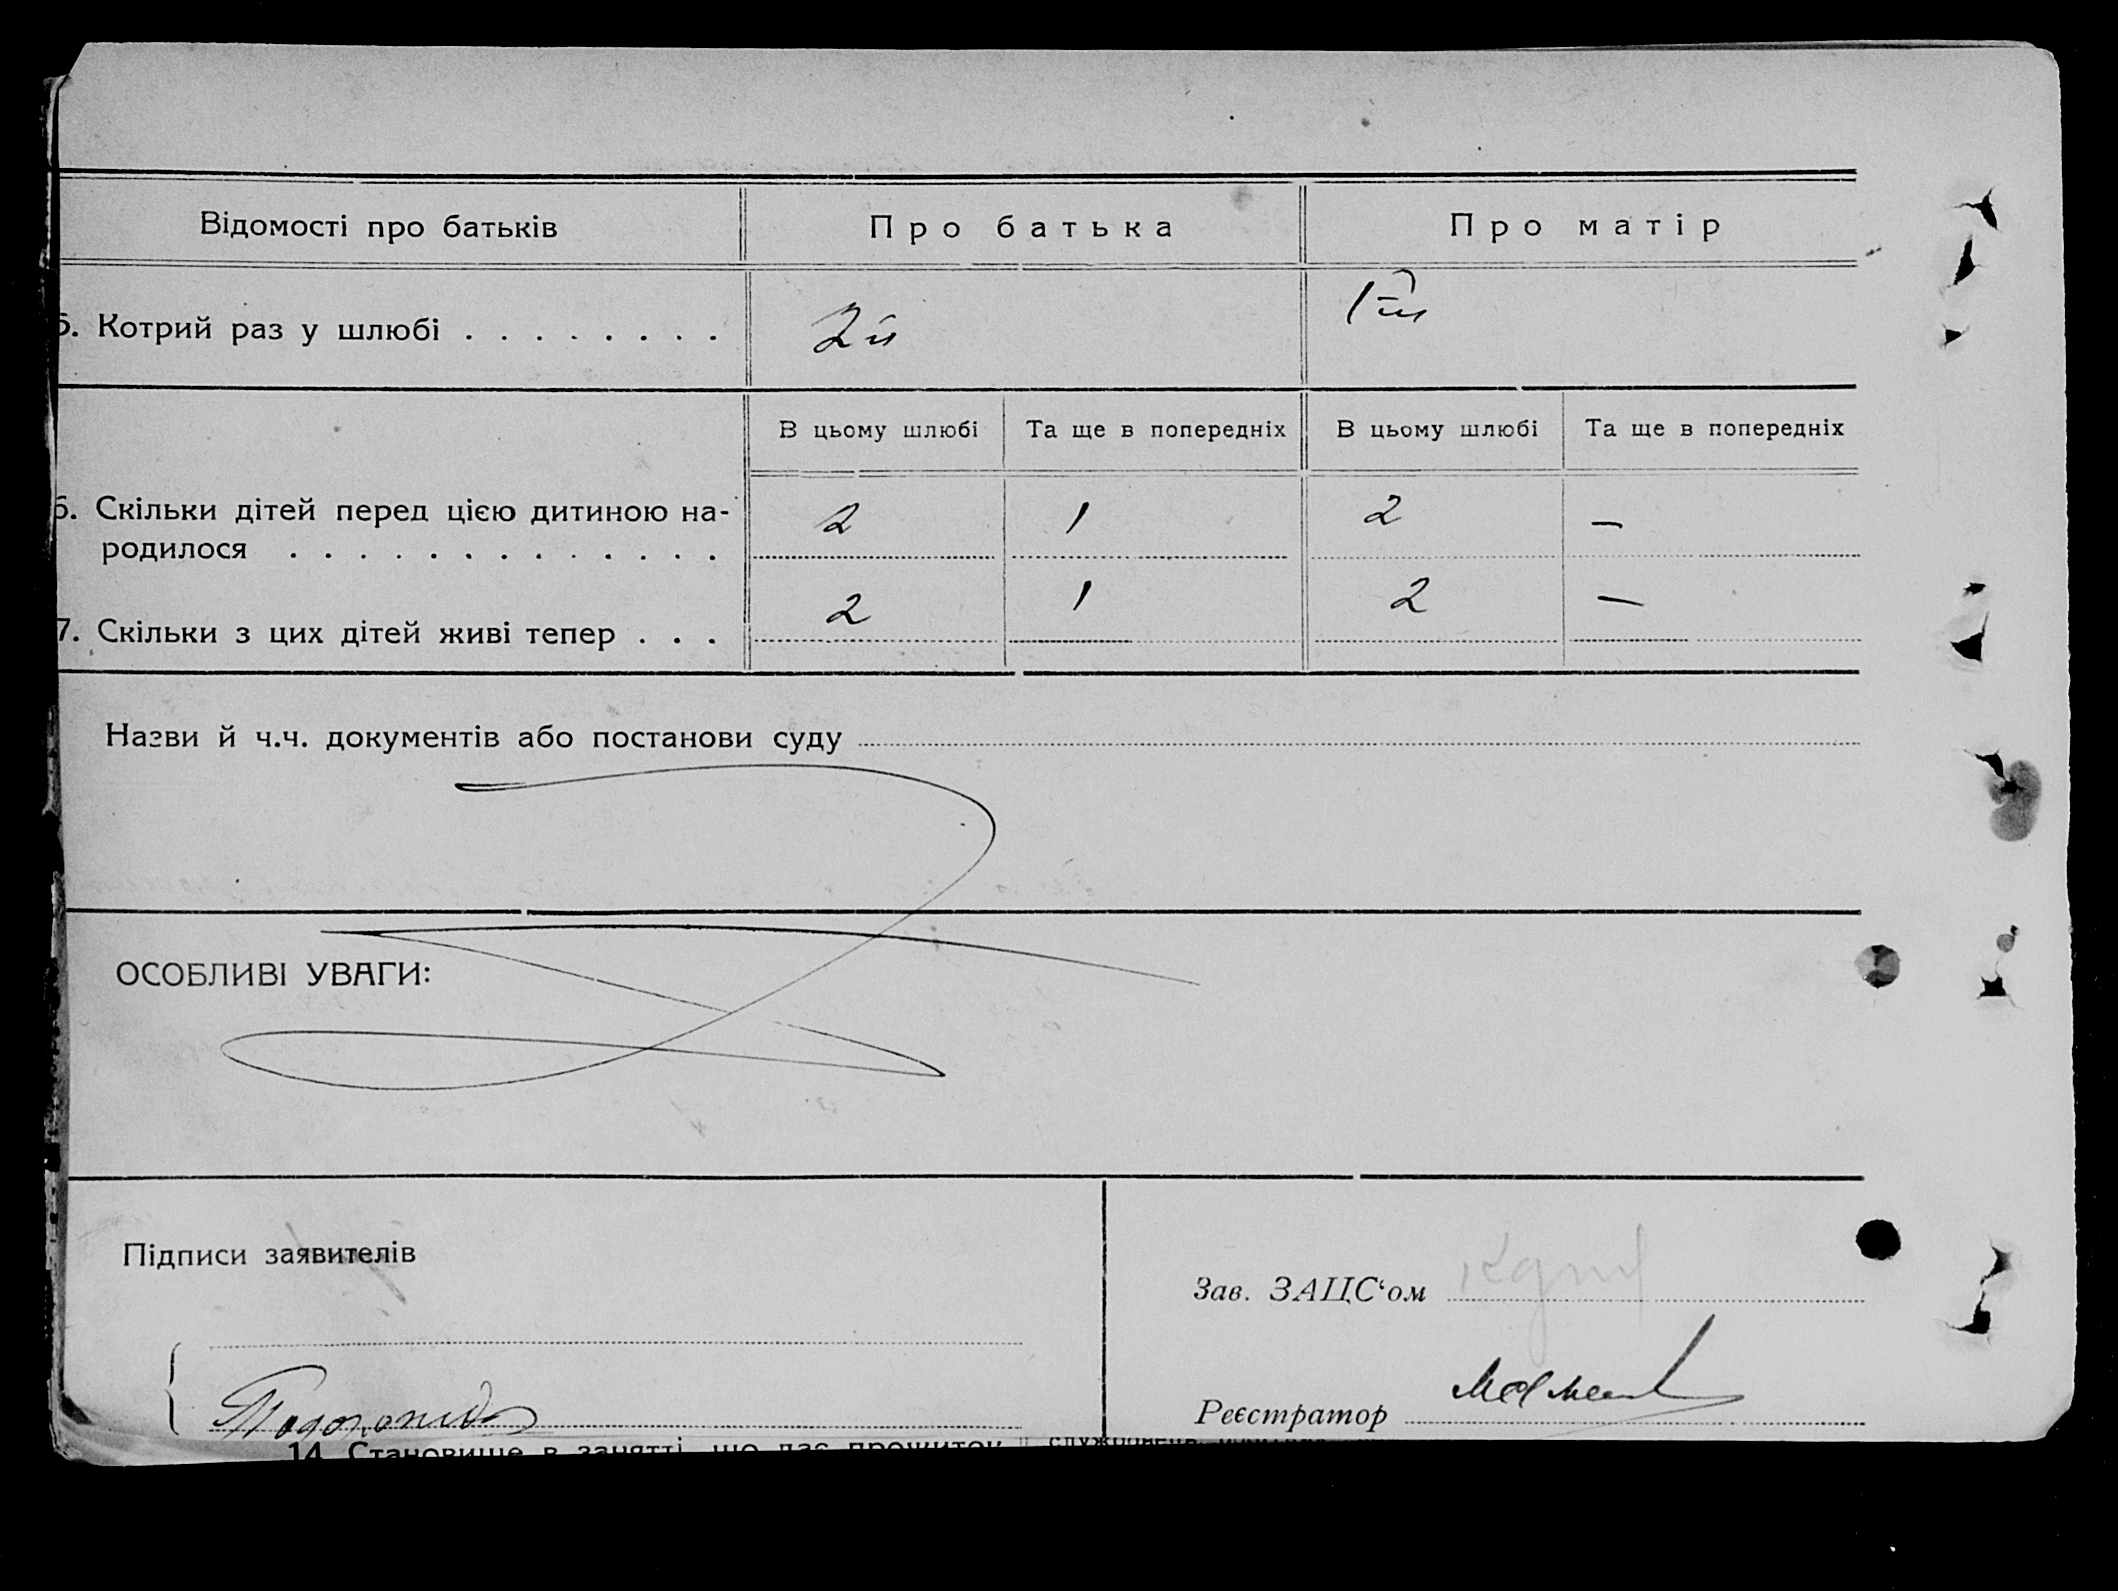 Відомості про батьків Про батька Про матір
Котрий раз у шлюбі . . . . . . . . 2й 1й
В цьому шлюбі Та ще в попередніх В цьому шлюбі Та ще в попередніх
6. Скільки дітей перед цією дитиною на-
родилося . . . . . . . . . . . . . 2 1 2 —
7. Скільки з цих дітей живі тепер . . . 2 1 2 —
Назви й ч.ч. документів або постанови суду
ОСОБЛИВІ УВАГИ:
Підписи заявителів
Зав. ЗАЦС‘ом
Реєстратор
14. Становище в занятті, що дає прожиток